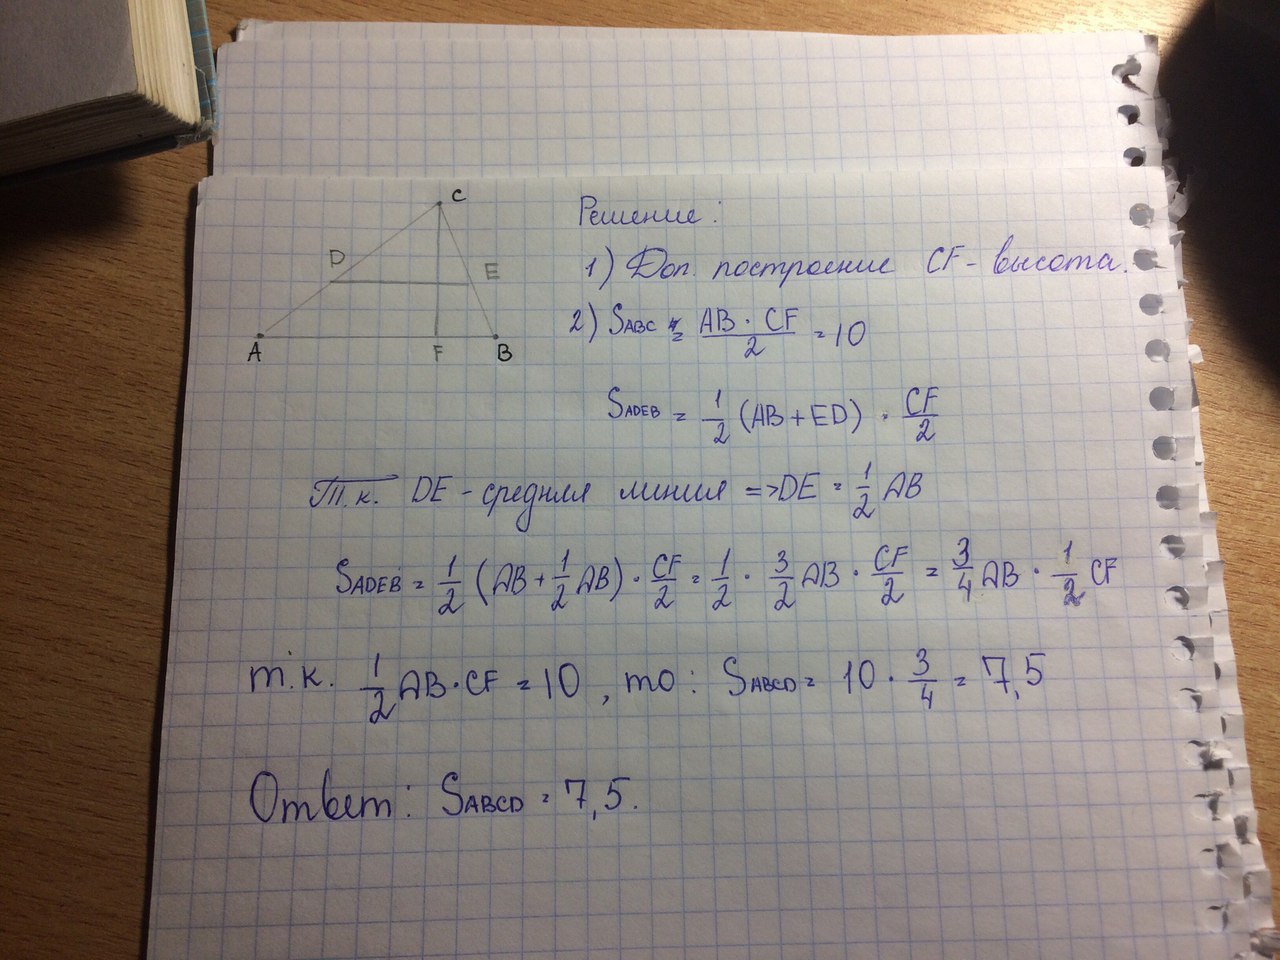 C
D
E
A
F
B
Решение:
1) Доп. построение CF - высота.
2) SABC = AB · CF / 2 = 10
SADEB = 1/2 (AB + ED) · CF/2
Т.к. DE - средняя линия => DE = 1/2 AB
SADEB = 1/2 (AB + 1/2 AB) · CF/2 = 1/2 · 3/2 AB · CF/2 = 3/4 AB · 1/2 CF
т.к. 1/2 AB · CF = 10, то: SABCD = 10 · 3/4 = 7,5
Ответ: SABCD = 7,5.